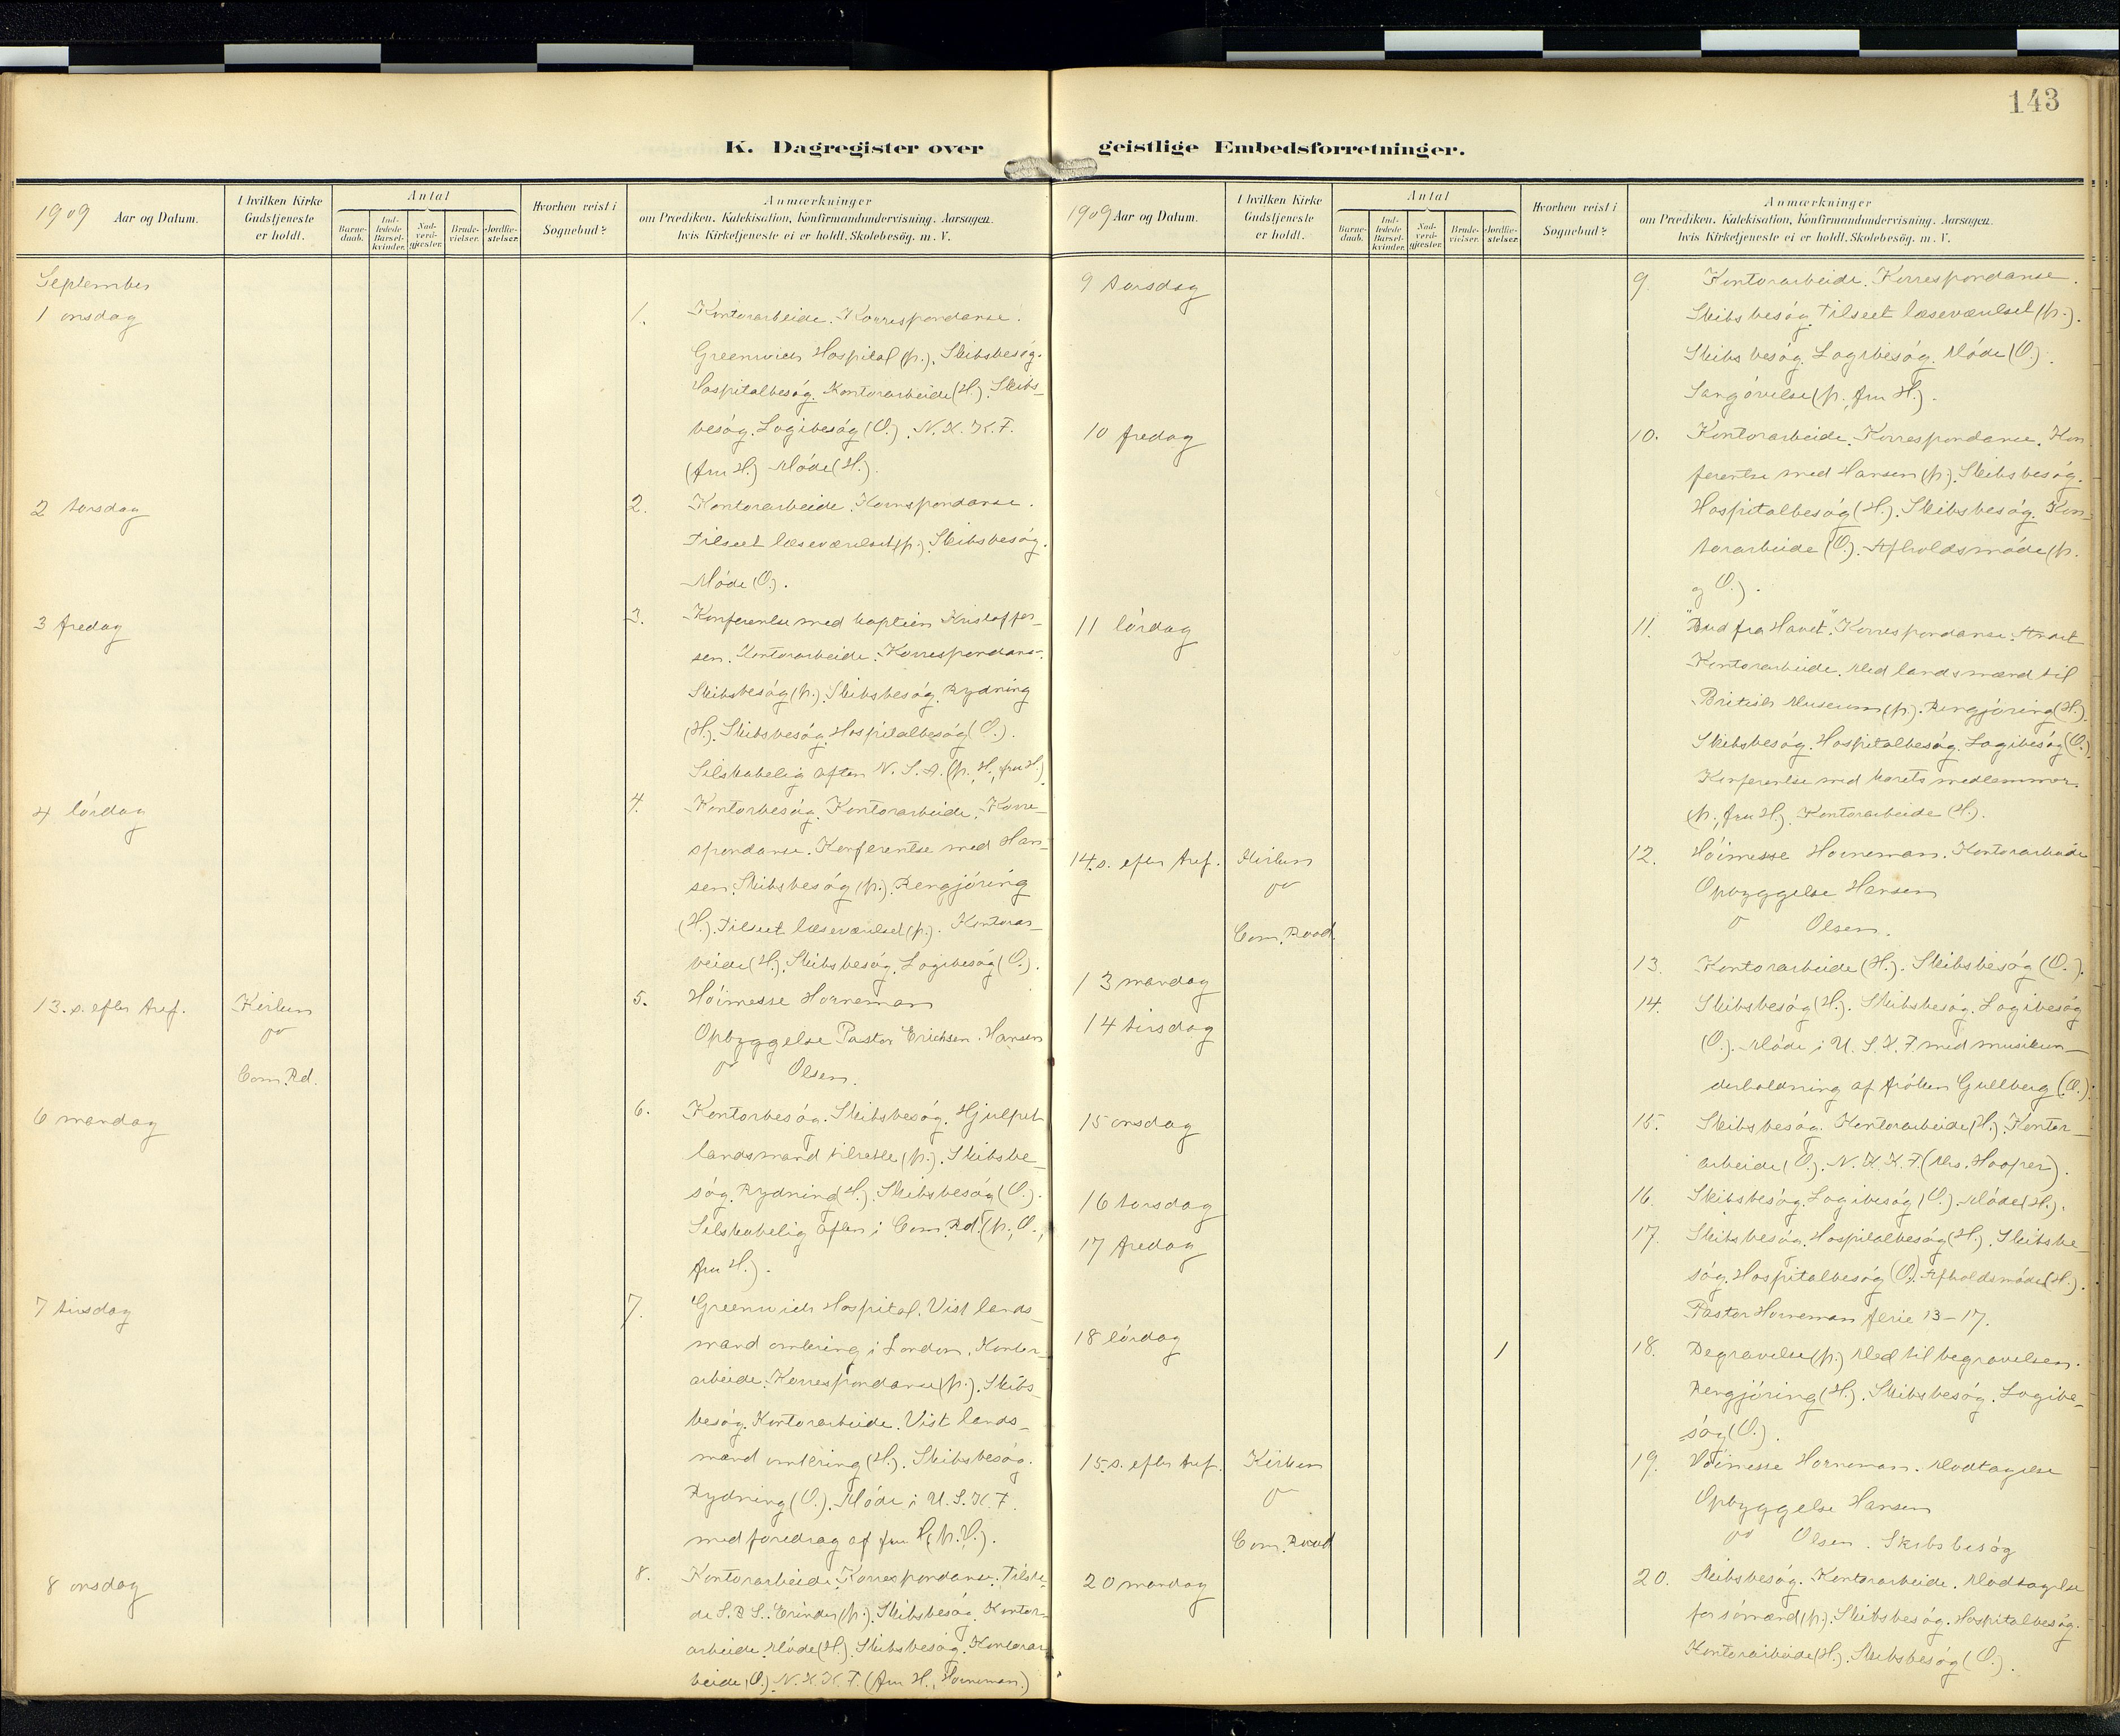 143
K. Dagregister over
geistlige Embedsforretninger.
1909 Aar og Datum.
I hvilken Kirke
Gudstjeneste
er holdt.
Antal
Barne-
daab.
Ind-
ledede
Barsel-
kvinder.
Nad-
verd-
gjæster.
Brude-
vielser.
Jordfæ-
stelser.
Hvorhen reist i
Sognebud?
Anmærkninger
om Prædiken, Katekisation, Konfirmandundervisning. Aarsagen,
hvis Kirketjeneste ei er holdt. Skolebesøg. m. V.
September
1 onsdag
1. Kontorarbeide. Korrespondanse.
Greenwich Hospital (p.). Skibsbesøg.
Hospitalbesøg. Kontorarbeide (H.). Skibs-
besøg. Logibesøg (O.). N. K. K. F.
(fru H.) Møde (H.).
2 torsdag
2. Kontorarbeide. Korrespondanse.
Tilseet læseværelset (p.). Skibsbesøg.
Møde (O.).
3 fredag
3. Konferentse med kaptein Kristoffer-
sen. Kontorarbeide. Korrespondanse.
Skibsbesøg (p.). Skibsbesøg. Rydning
(H.). Skibsbesøg. Hospitalbesøg (O.).
Selskabelig aften N. S. A. (p., H., fru H.)
4 lørdag
4. Kontorbesøg. Kontorarbeide. Korre-
spondanse. Konferentse med Han-
sen. Skibsbesøg (p.). Rengjøring
(H.). Tilseet læseværelset (p.). Kontorar-
beide (H.). Skibsbesøg. Logibesøg (O.).
13. s. efter tref.
Kirken
Com. Rd.
5. Høimesse Horneman
Opbyggelse Pastor Erichsen. Hansen
Olsen.
6 mandag
6. Kontorbesøg. Skibsbesøg. Hjulpet
landsmand tilrette (p.). Skibsbe-
søg. Rydning (H.). Skibsbesøg (O.).
Selskabelig aften i Com. Rd. (p., O.,
fru H.).
7 tirsdag
7. Greenwich Hospital. Vist lands-
mænd omkring i London. Kontor-
arbeide. Korrespondanse (p.). Skibs-
besøg. Kontorarbeide. Vist lands-
mænd omkring (H.). Skibsbesøg.
Rydning (O.). Møde i U. S. K. F.
med foredrag af fru
8 onsdag
8. Kontorarbeide. Korrespondanse. Tilste-
de S. B. S. Erinder (p.). Skibsbesøg. Kontor-
arbeide. Møde (H.). Skibsbesøg. Kontorar-
beide (O.). N. K. K. F. (fru H., Horneman.)
1909 Aar og Datum.
I hvilken Kirke
Gudstjeneste
er holdt.
Antal
Barne-
daab.
Ind-
ledede
Barsel-
kvinder.
Nad-
verd-
gjæster.
Brude-
vielser.
Jordfæ-
stelser.
Hvorhen reist i
Sognebud?
Anmærkninger
om Prædiken, Katekisation, Konfirmandundervisning. Aarsagen,
hvis Kirketjeneste ei er holdt. Skolebesøg. m. V.
9 torsdag
9. Kontorarbeide. Korrespondanse.
Skibsbesøg. Tilseet læseværelset (p.).
Skibsbesøg. Logibesøg. Møde (O.).
Sangøvelse (p., fru H.).
10 fredag
10. Kontorarbeide. Korrespondanse. Kon
ferentse med Hansen (p.). Skibsbesøg.
Hospitalbesøg (H.). Skibsbesøg. Kon-
torarbeide (O.). Afholdsmøde (p.
og O.).
11 lørdag
11. "Bud fra Havet". Korrespondanse.
Kontorarbeide. Med landsmænd til
British Museum (p.). Rengjøring (H.).
Skibsbesøg. Hospitalbesøg. Logibesøg (O.)
Konferentse med korets medlemmer.
(p., fru H.). Kontorarbeide (H.).
14. s. efter tref.
Kirken
Com. Road.
12. Høimesse Horneman. Kontorarbeide
Opbyggelse Hansen
Olsen.
13 mandag
13. Kontorarbeide (H.). Skibsbesøg (O.).
14 tirsdag
14. Skibsbesøg (H.). Skibsbesøg. Logibesøg
(O.). Møde i U. S. K. F. med musikun-
derholdning af frøken Gullberg (O.).
15 onsdag
15. Skibsbesøg. Kontorarbeide (H.). Kontor-
arbeide (O.). N. K. K. F. (Mrs. Hooper).
16 torsdag
16. Skibsbesøg. Logibesøg (O.). Møde (H.).
17 fredag
17. Skibsbesøg. Hospitalbesøg (H.). Skibsbe-
søg. Hospitalbesøg (O.). Afholdsmøde (H.).
Pastor Horneman ferie 13-17.
18 lørdag
1
18. Begravelse (p.). Med til begravelsen.
Rengjøring (H.). Skibsbesøg. Logibe-
søg (O.).
15. s. efter tref.
Kirken
Com. Road
19. Høimesse Horneman. Modtagelse
Opbyggelse Hansen
Olsen. Skibsbesøg
20 mandag
20. Skibsbesøg. Kontorarbeide. Modtagelse
for sømænd (p.). Skibsbesøg. Hospitalbesøg.
Kontorarbeide (H.). Skibsbesøg (O.).